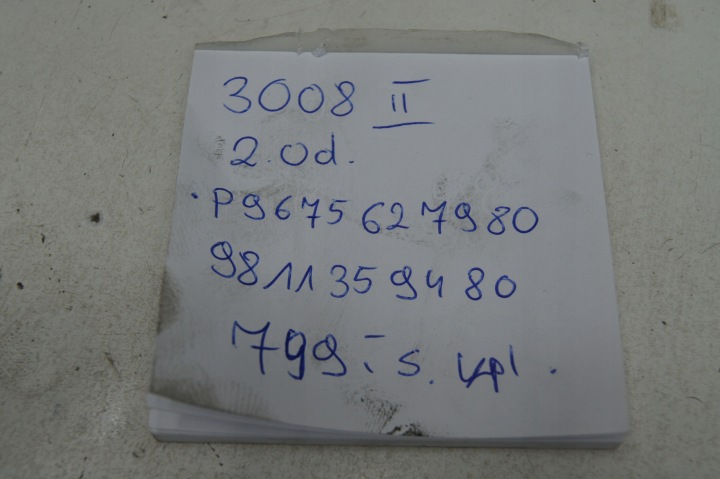 3008 II
2.0d.
P9675627980
9811359480
799.- s. kpl.